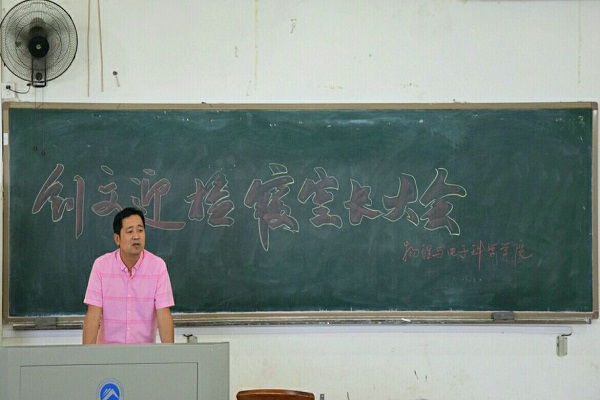 创文迎检寝室长大会
物理与电子科学学院